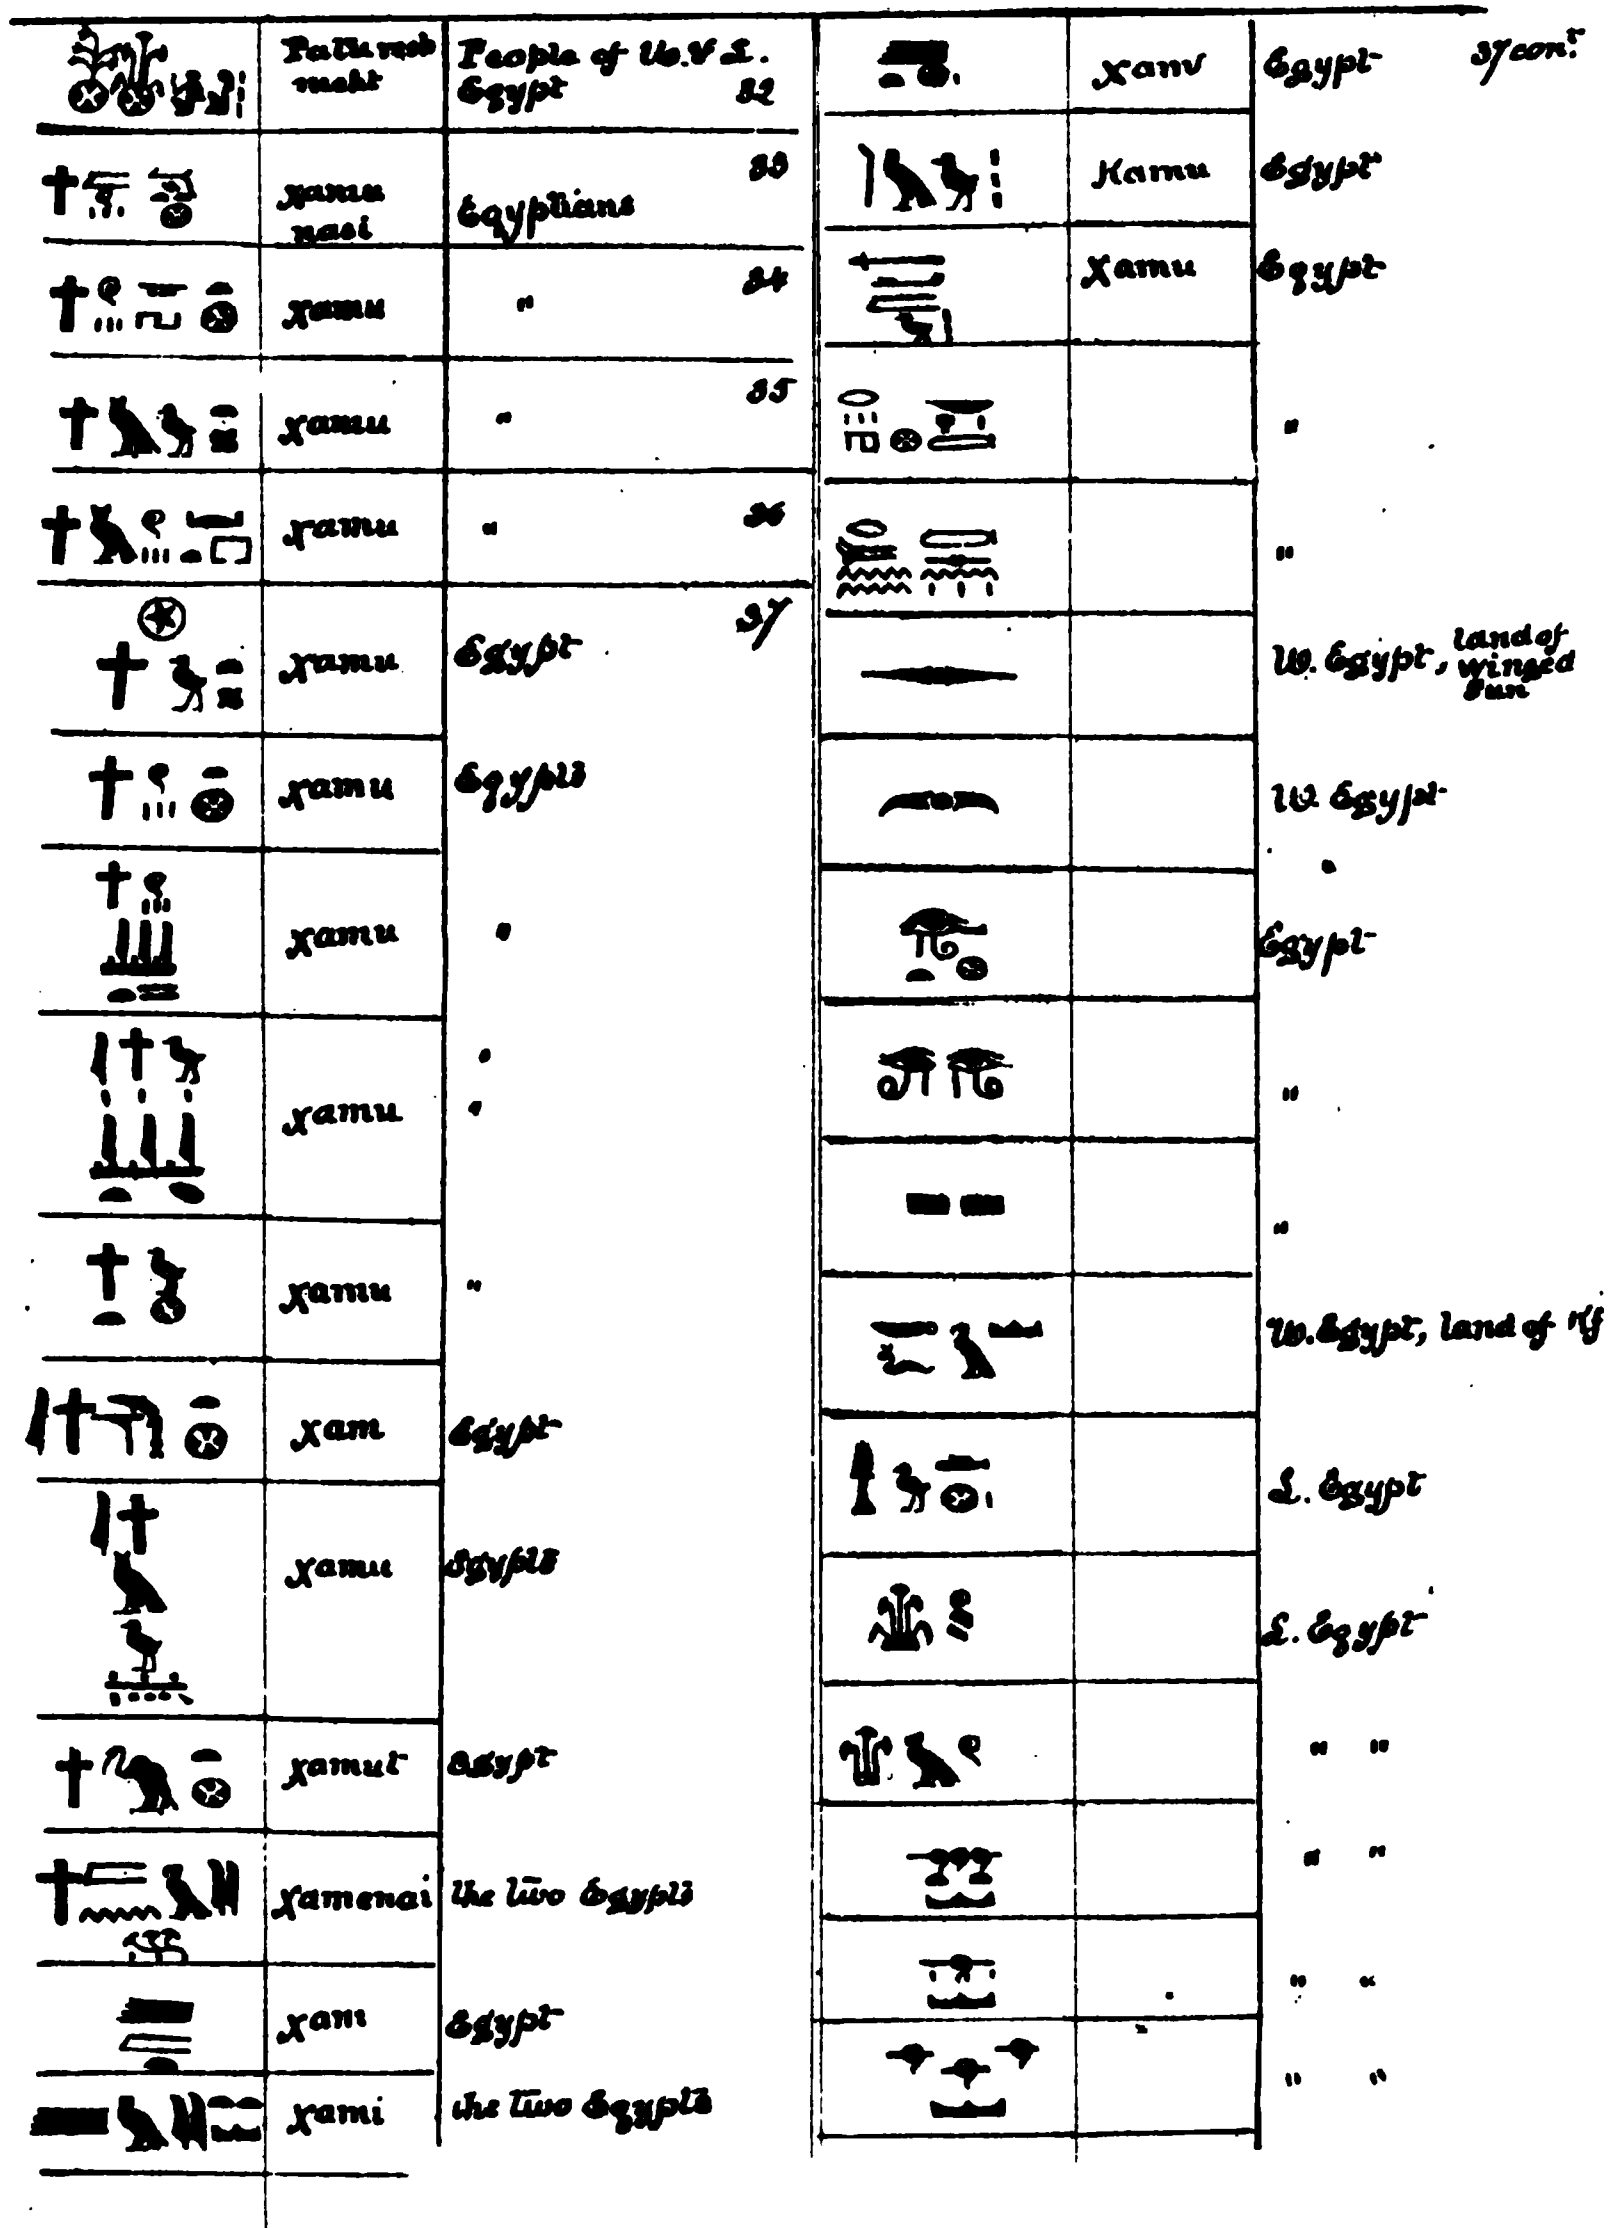 People of U. & L.
meht Egypt 32
33
χamu Egyptians
nasi
χamu " 34
χamu " 35
χamu " 36
χamu Egypt 37
χamu Egypts
χamu "
χamu "
"
χamu "
χam Egypt
χamu Egypts
χamut Egypt
χamenai the two Egypts
χam Egypt
χami the two Egypts
Egypt 37 con.t
Kamu Egypt
χamu Egypt
"
"
W. Egypt, land of
winged
sun
W. Egypt
Egypt
"
"
W. Egypt, land of
L. Egypt
L. Egypt
" "
" "
" "
" "